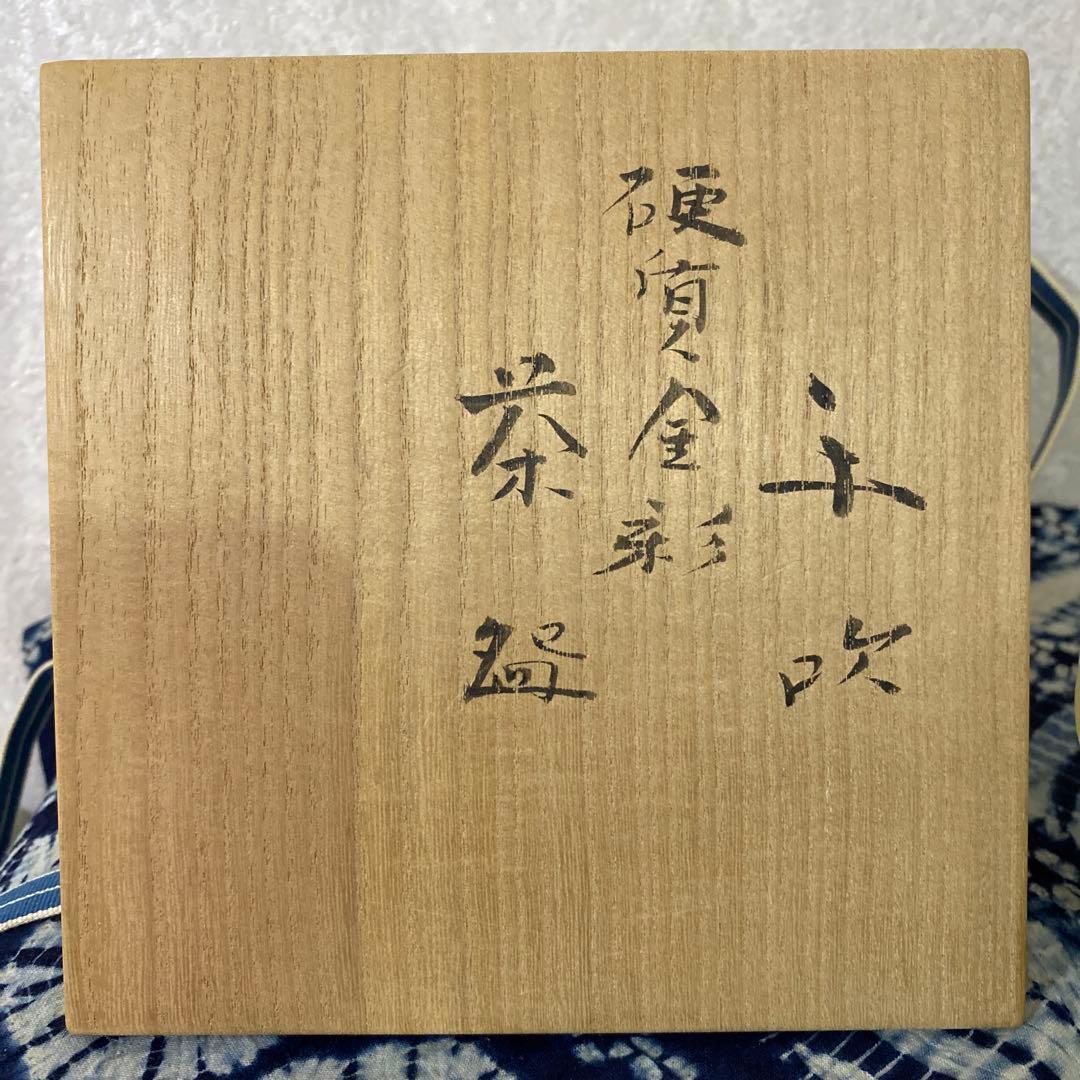 手吹
硬質金彩
茶盌